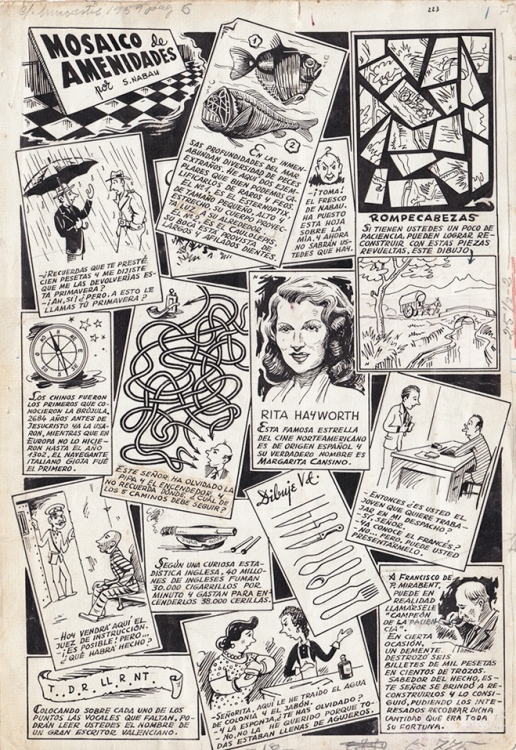 223
MOSAICO de
AMENIDADES
por S. NABAU
1
2
EN LAS INMEN-
SAS PROFUNDIDADES DEL MAR
ABUNDAN DIVERSIDAD DE PECES
EXTRAÑOS. HE AQUÍ DOS EJEM-
PLARES QUE BIEN PODEMOS CA-
LIFICARLOS DE RAROS Y FEOS.
DE TAMAÑO PEQUEÑO, ALTO Y
ESTRECHO SU CUERPO PROYEC-
TA LUZ A SU ALREDEDOR.
SU BOCA ESTÁ PROVISTA DE
LARGOS Y AFILADOS DIENTES.
¡TOMA!
EL FRESCO
DE NABAU,
HA PUESTO
ESTA HOJA
SOBRE LA
MÍA, Y AHORA
NO SABRÁN US-
TEDES QUE HAY.
ROMPECABEZAS
SI TIENEN USTEDES UN POCO DE
PACIENCIA, PUEDEN LOGRAR RE-
CONSTRUIR CON ESTAS PIEZAS
REVUELTAS, ESTE DIBUJO.
-¿RECUERDAS QUE TE PRESTÉ
CIEN PESETAS Y ME DIJISTE
QUE ME LAS DEVOLVERÍAS ES-
TA PRIMAVERA?
-¡AH, SÍ! ¿PERO, A ESTO LE
LLAMAS TÚ PRIMAVERA?
LOS CHINOS FUERON
LOS PRIMEROS QUE CO-
NOCIERON LA BRÚJULA,
2684 AÑOS ANTES DE
JESUCRISTO YA LA USA-
RON, MIENTRAS QUE EN
EUROPA NO LO HICIE-
RON HASTA EL AÑO
1302. EL NAVEGANTE
ITALIANO GIOJA FUÉ
EL PRIMERO.
ESTE SEÑOR HA OLVIDADO LA
PIPA Y EL ENCENDEDOR Y
NO RECUERDA DONDE. ¿CUÁL DE
LOS 5 CAMINOS DEBE SEGUIR?
RITA HAYWORTH
ESTA FAMOSA ESTRELLA
DEL CINE NORTEAMERICANO
ES DE ORIGEN ESPAÑOL Y
SU VERDADERO NOMBRE ES
MARGARITA CANSINO.
-ENTONCES ¿ES USTED EL
JOVEN QUE QUIERE TRABA-
JAR EN MI DESPACHO?
-SÍ, SEÑOR.
-¿CONOCE EL FRANCÉS?
-NO... PERO, PUEDE USTED
PRESENTÁRMELO.
Dibuje Vd.
-HOY VENDRÁ AQUÍ EL
JUEZ DE INSTRUCCIÓN.
-¡ES POSIBLE! ¡PERO...
¿QUÉ HABRÁ HECHO?
SEGÚN UNA CURIOSA ESTA-
DÍSTICA INGLESA, 40 MILLO-
NES DE INGLESES FUMAN
30.000 CIGARRILLOS POR
MINUTO Y GASTAN PARA EN-
CENDERLOS 38.000 CERILLAS.
A FRANCISCO DE
P. MIRABENT,
PUEDE EN
REALIDAD
LLAMÁRSELE
"CAMPEÓN
DE LA PACIEN-
CIA".
EN CIERTA
OCASIÓN,
UN DEMENTE
DESTROZÓ SEIS
BILLETES DE MIL PESETAS
EN CIENTOS DE TROZOS.
SABEDOR DEL HECHO, ES-
TE SEÑOR SE BRINDÓ A RE-
CONSTRUIRLOS Y LO CONSI-
GUIÓ, PUDIENDO LOS INTE-
RESADOS RECOBRAR DICHA
CANTIDAD QUE ERA TODA
SU FORTUNA.
T..D.R..LL.R.NT..
COLOCANDO SOBRE CADA UNO DE LOS
PUNTOS LAS VOCALES QUE FALTAN, PO-
DRÁN LEER USTEDES EL NOMBRE DE
UN GRAN ESCRITOR VALENCIANO.
-SEÑORITA, AQUÍ LE HE TRAÍDO EL AGUA
DE COLONIA Y EL JABÓN.
-¿Y LA ESPONJA, TE HAS OLVIDADO?
-NO. NO LA HE QUERIDO PORQUE TO-
DAS ESTABAN LLENAS DE AGUJEROS.